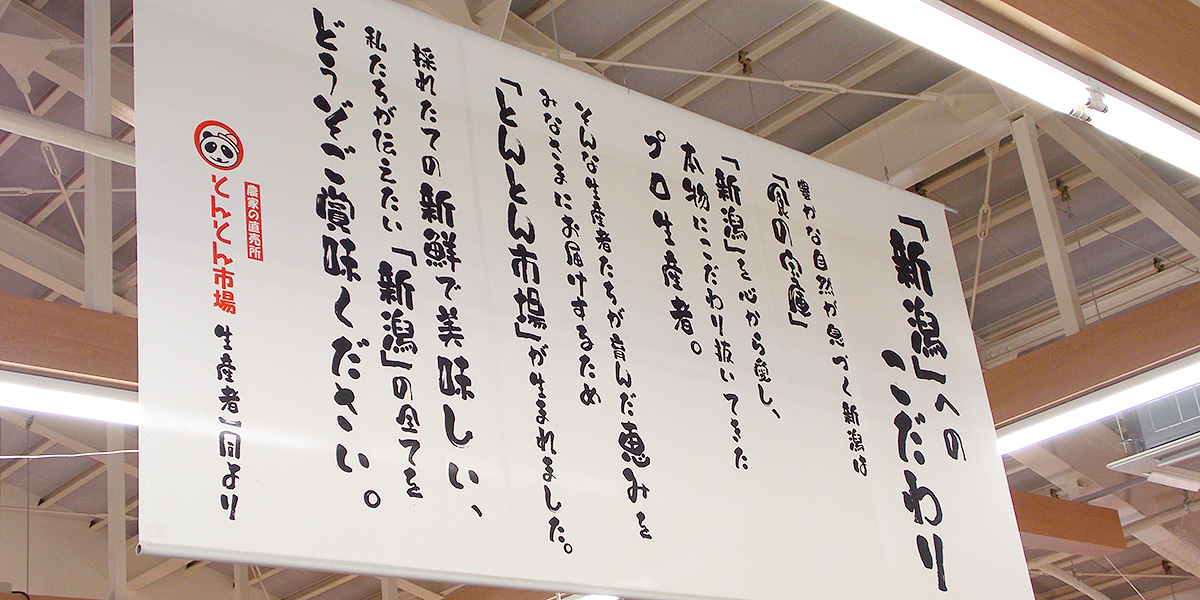 「新潟」への
こだわり
豊かな自然が息づく新潟は
「食の宝庫」
「新潟」を心から愛し、
本物にこだわり抜いてきた
プロ生産者。
そんな生産者たちが育んだ恵みを
みなさまにお届けするため
「とんとん市場」が生まれました。
採れたての新鮮で美味しい、
私たちが伝えたい「新潟」の全てを
どうぞご賞味ください。
農家の直売所
とんとん市場
生産者一同より